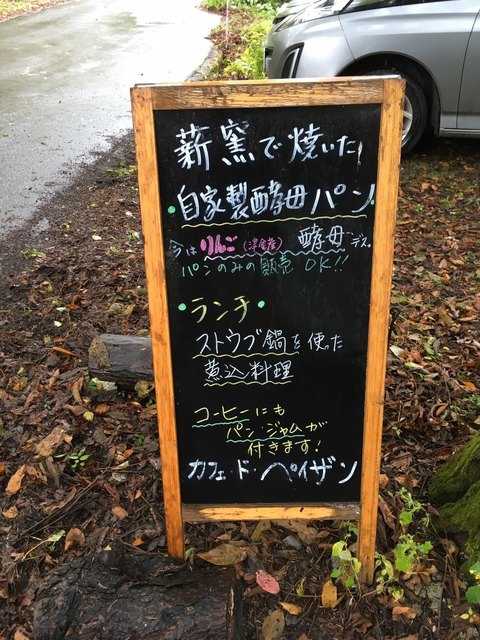 薪窯で焼いた!
・自家製酵母パン・
今はりんご(津金産)酵母デス。
パンのみの販売 OK!!
・ランチ・
ストウブ鍋を使った
煮込料理
コーヒーにも
パン・ジャムが
付きます!
カフェ・ド・ペイザン